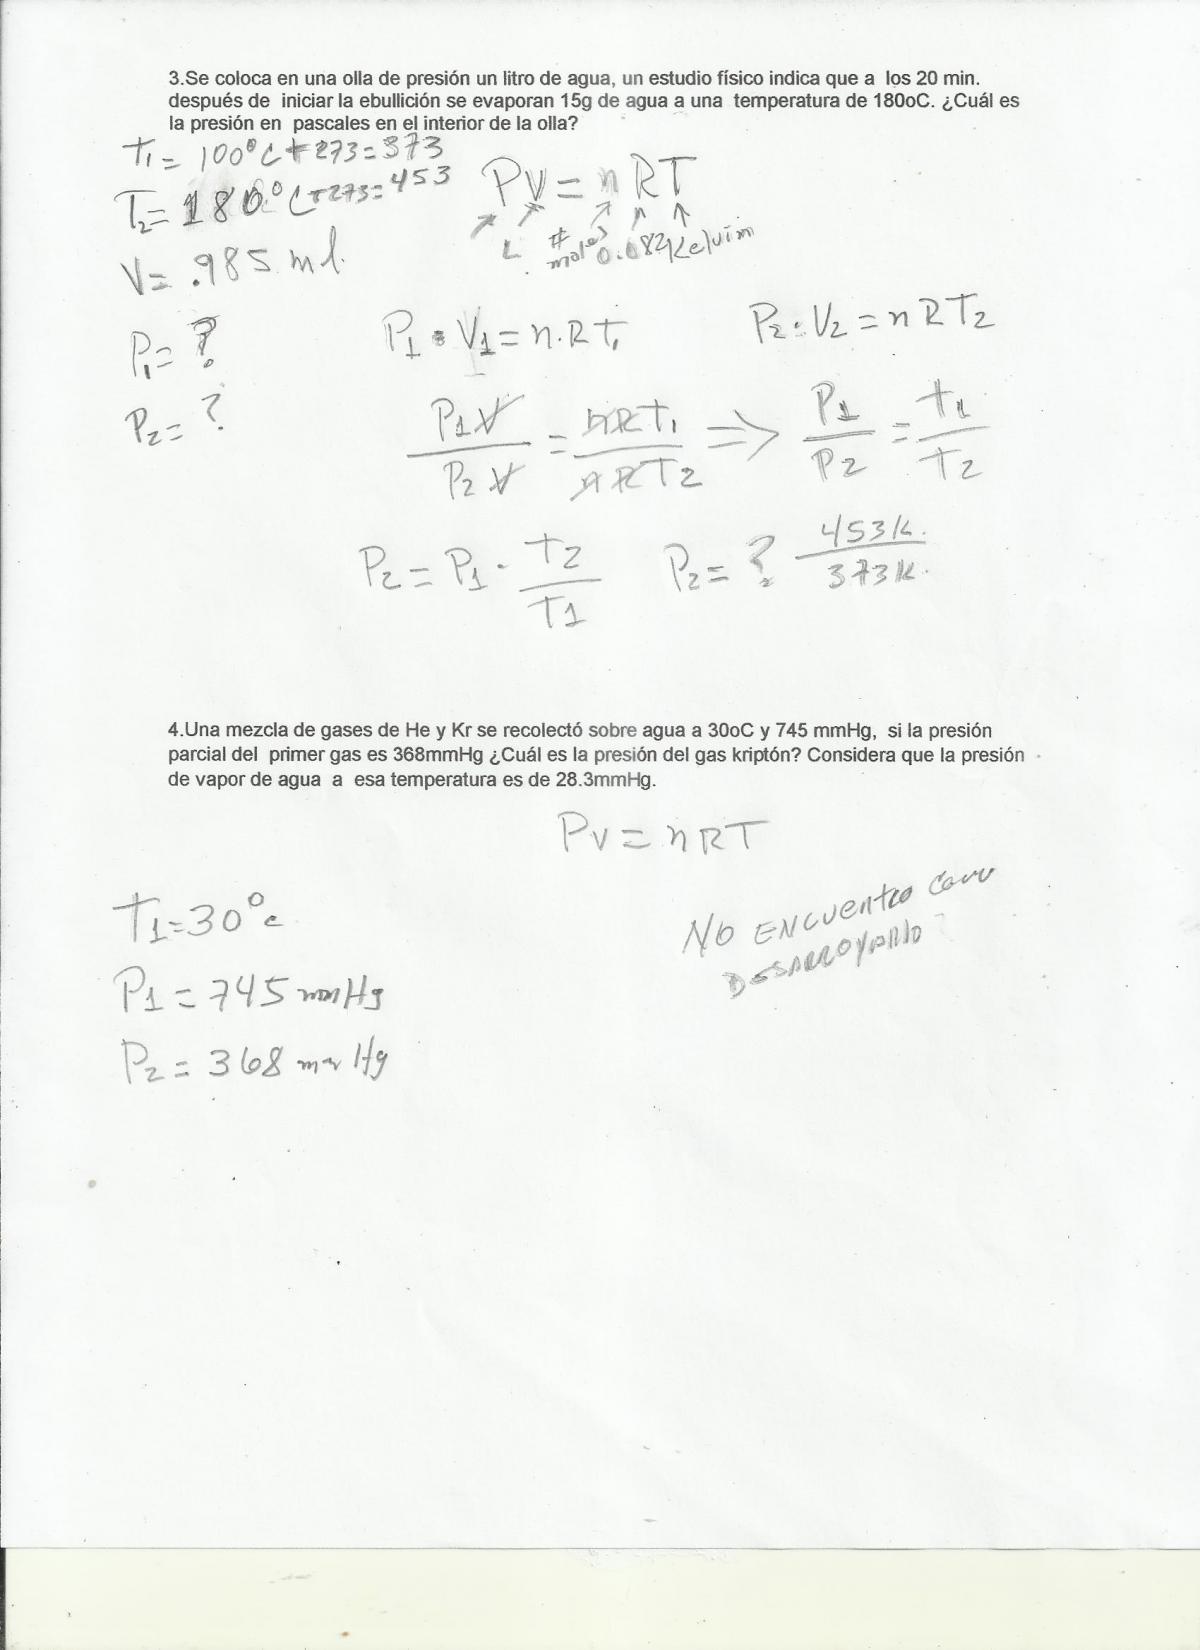 3.Se coloca en una olla de presión un litro de agua, un estudio físico indica que a los 20 min.
después de iniciar la ebullición se evaporan 15g de agua a una temperatura de 180oC. ¿Cuál es
la presión en pascales en el interior de la olla?
T1 = 100°C + 273 = 373
T2 = 180°C + 273 = 453
PV = nRT
L # moles 0.082 Kelvim
V = .985 ml.
P1 = ?
P1 · V1 = n·RT1
P2 · V2 = nRT2
P2 = ?
P1V / P2V = nRT1 / nRT2 => P1 / P2 = T1 / T2
P2 = P1 · T2 / T1
P2 = ? 453K. / 373K.
4.Una mezcla de gases de He y Kr se recolectó sobre agua a 30oC y 745 mmHg, si la presión
parcial del primer gas es 368mmHg ¿Cuál es la presión del gas kriptón? Considera que la presión
de vapor de agua a esa temperatura es de 28.3mmHg.
PV = nRT
T1 = 30°c
NO ENCUENTRO COMO
DESARROYARLO
P1 = 745 mmHg
P2 = 368 mmHg